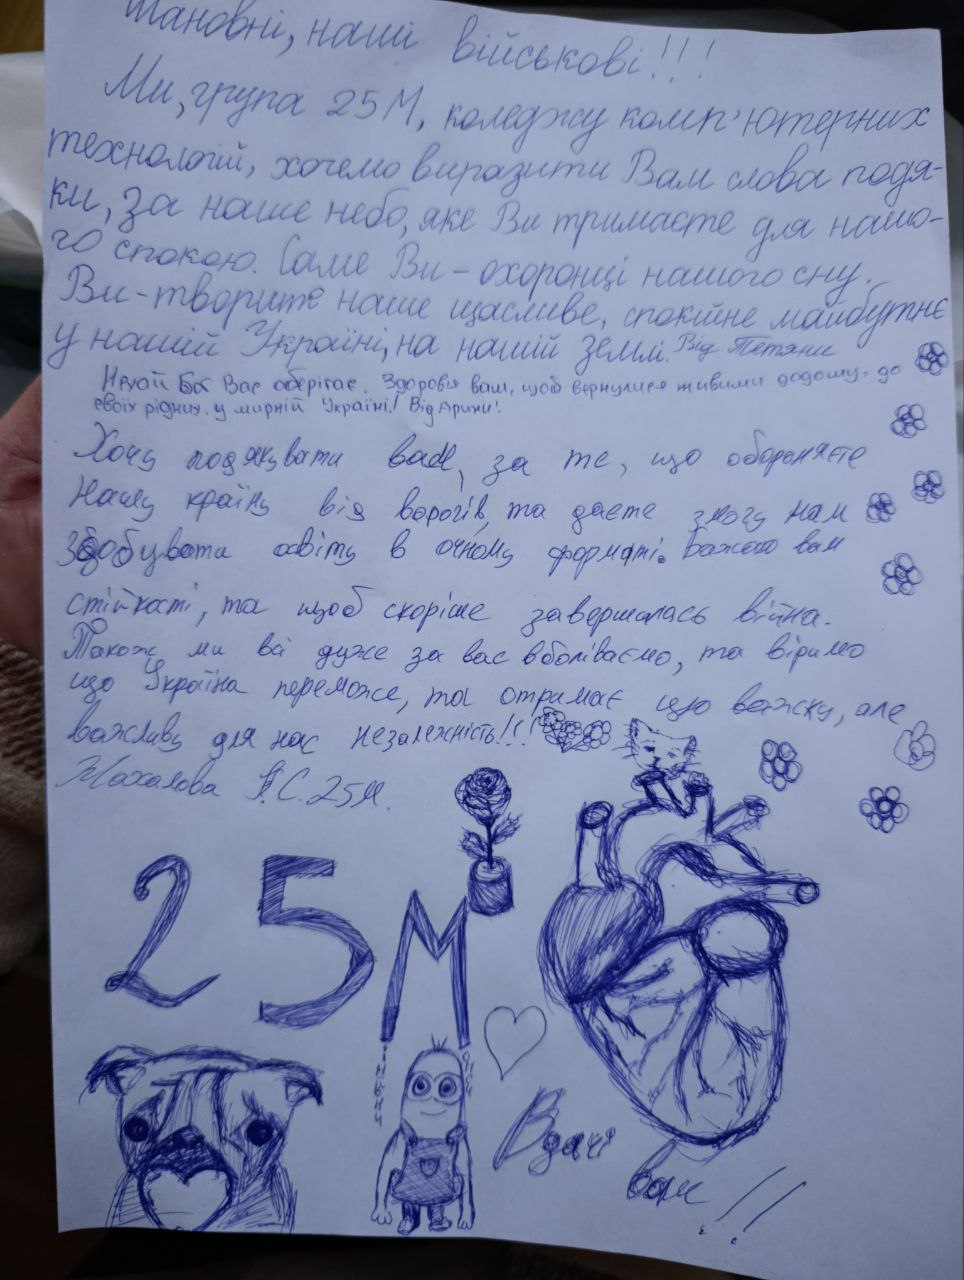 Шановні, наші військові!!!
Ми, група 25М, коледжу комп'ютерних
технологій, хочемо виразити Вам слова подя-
ки, за наше небо, яке Ви тримаєте для нашо-
го спокою. Саме Ви - охоронці нашого сну.
Ви - творите наше щасливе, спокійне майбутнє
у нашій Україні, на нашій землі. Від Тетяни
Нехай Бог Вас оберігає. Здоров'я вам, щоб вернулися живими додому, до
своїх рідних. у мирній Україні! Від Арини!
Хочу подякувати вам, за те, що обороняєте
Нашу країну від ворогів, та даєте змогу нам
Здобувати освіту в очному форматі. Бажаю вам
стійкості, та щоб скоріше завершилась війна.
Також ми всі дуже за вас вболіваємо, та віримо
що Україна переможе, та отримає цю важку, але
важливу для нас незалежність!!!
25М.
25М
Вдячні
вам!!